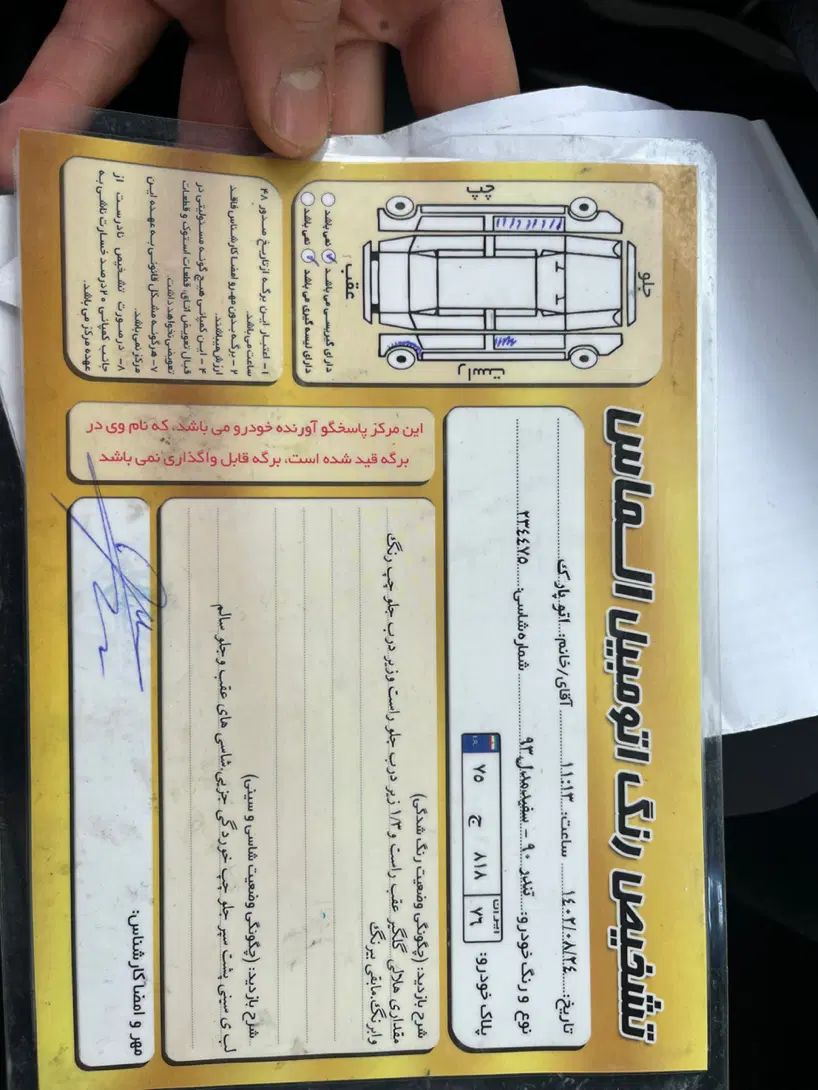 تشخیص رنگ اتومبیل الماس
تاریخ: ۱٤۰۲/۰۸/۲٤ ساعت: ۱۱:۱۳ آقای/خانم: اتو پارک
نوع و رنگ خودرو: تندر ۹۰ - سفید مدل ۹۳ شماره شاسی: ۲۳٤٤۷۵
پلاک خودرو: ۷۵ ج ۸۱۸ ایران ۷۶
I.R.
جلو
چپ
راست
عقب
دارای گیربسی می باشد نمی باشد
دارای لیسه گیری می باشد نمی باشد
شرح بازدید: (چگونگی وضعیت رنگ شدگی)
مقداری هلالی گلگیر عقب راست و ۱/۳ زیر درب جلو راست و زیر درب جلو چپ رنگ
وابرنگ.مابقی بیرنگ
شرح بازدید: (چگونگی وضعیت شاسی و سینی)
لب ی سینی پشت سپر جلو چپ خوردگی جزیی.شاسی های عقب و جلو سالم
۱- اعتبار این برگه از تاریخ صدور ۴۸
ساعت می باشد.
۲- برگه بدون مهر و امضا کارشناس فاقد
ارزش میباشد.
۴- این کمپانی هیچ گونه مسئولیتی در
قبال تعویض اتاق، قطعات استوک و قطعات
تعویضی نخواهد داشت.
۷- هرگونه مشکل قانونی به عهده این
مرکز نمی باشد.
۸- درصورت تشخیص نادرست از
جانب کمپانی ۲۰درصد خسارت ناشی به
عهده مرکز می باشد.
این مرکز پاسخگو آورنده خودرو می باشد، که نام وی در
برگه قید شده است، برگه قابل واگذاری نمی باشد
مهر و امضا کارشناس: